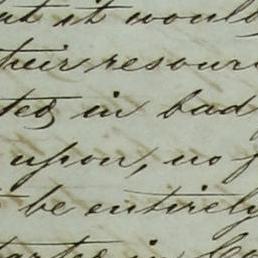 at it would
their resour
ted in bad
upon, no f
be entirely